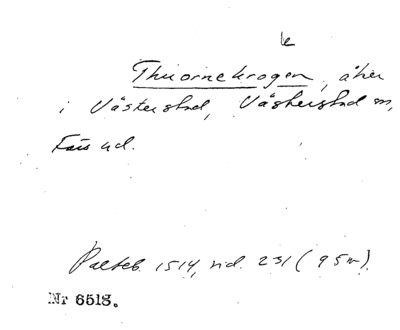 k
Thuornekrogen, åker
i Västerstad, Västerstad sn,
Färs hd.
Palteb. 1514, sid. 231 (95 m).
Nr 6518.